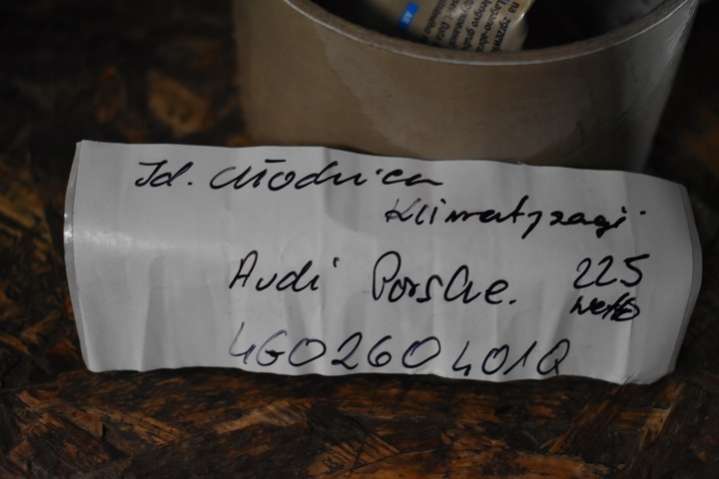 Jd. Chłodnica
Klimatyzacji
Audi Porsche. 225
netto
4G0260401Q